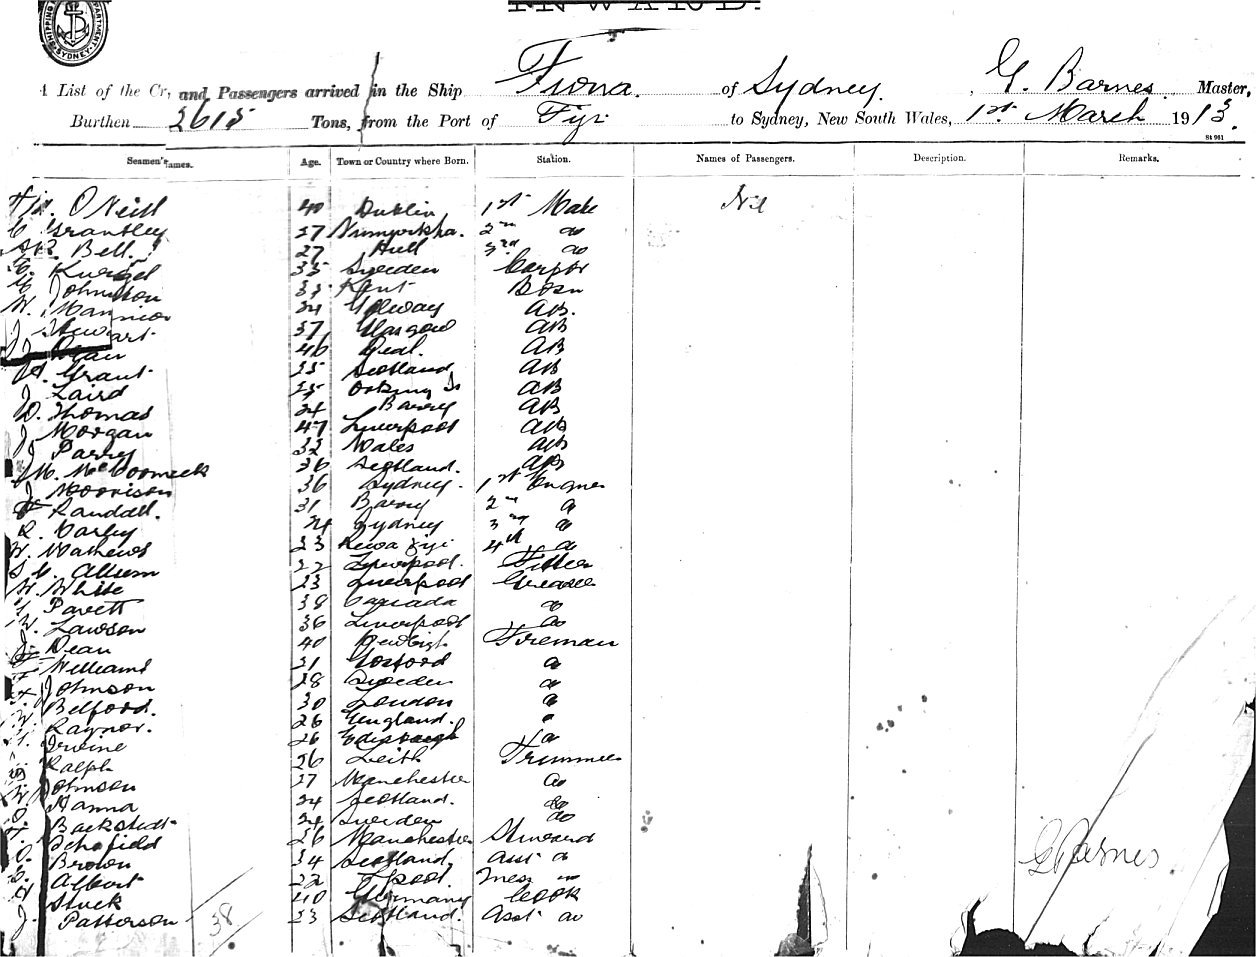 INWARD.
SHIPPING DEPARTMENT SYDNEY
A List of the Cr, and Passengers arrived in the Ship Fiona. of Sydney. , G. Barnes. Master,
Burthen 2615 Tons, from the Port of Fiji to Sydney, New South Wales, 1st March 1913.
St 961
Seamen's ames. Age. Town or Country where Born. Station. Names of Passengers. Description. Remarks.
O'Neill 40 Dublin 1st Mate Nil
C. Grantley 27 2nd do
Bell. 27 Hull 3rd do
35 Sweden Carptr
C. Johnston 35 Kent Bosn
W. Mannion 24 Galway AB.
J. Stewart 37 Glasgow AB
46 Deal. AB
Grant 25 Scotland AB
J. Laird 25 AB
D. Thomas 24 Barry AB
J. Morgan 47 Liverpool AB
J. Parry 32 Wales AB
M. McCormick 26 Scotland. AB
J. Morrison 36 Sydney. 1st Enginer
Randall. 31 Barry 2nd do
R. Carley 24 Sydney 3rd do
W. Mathews 23 Rewa Fiji 4th do
S. C. Allum 22 Liverpool. Fitter
W. White 23 Liverpool Greaser
Pavett 38 Canada do
W. Lawson 36 Liverpool do
J. Dean 40 Fireman
Williams 21 Gosford do
Johnson 28 Sweden do
Belford. 30 London do
Raynor. 26 England. "
Irvine 26 Edinburgh do
Ralph 26 Leith Trimmer
Johnson 27 Manchester do
Hanna 24 Scotland. do
Backstedt 24 Sweden do
Schofield 26 Manchester Steward
Brown 34 Scotland, Asst do
Albert 22 L'pool. Mess "
Stuck 40 Germany Cook
J. Patterson 23 Scotland. Asst do
38
G Barnes